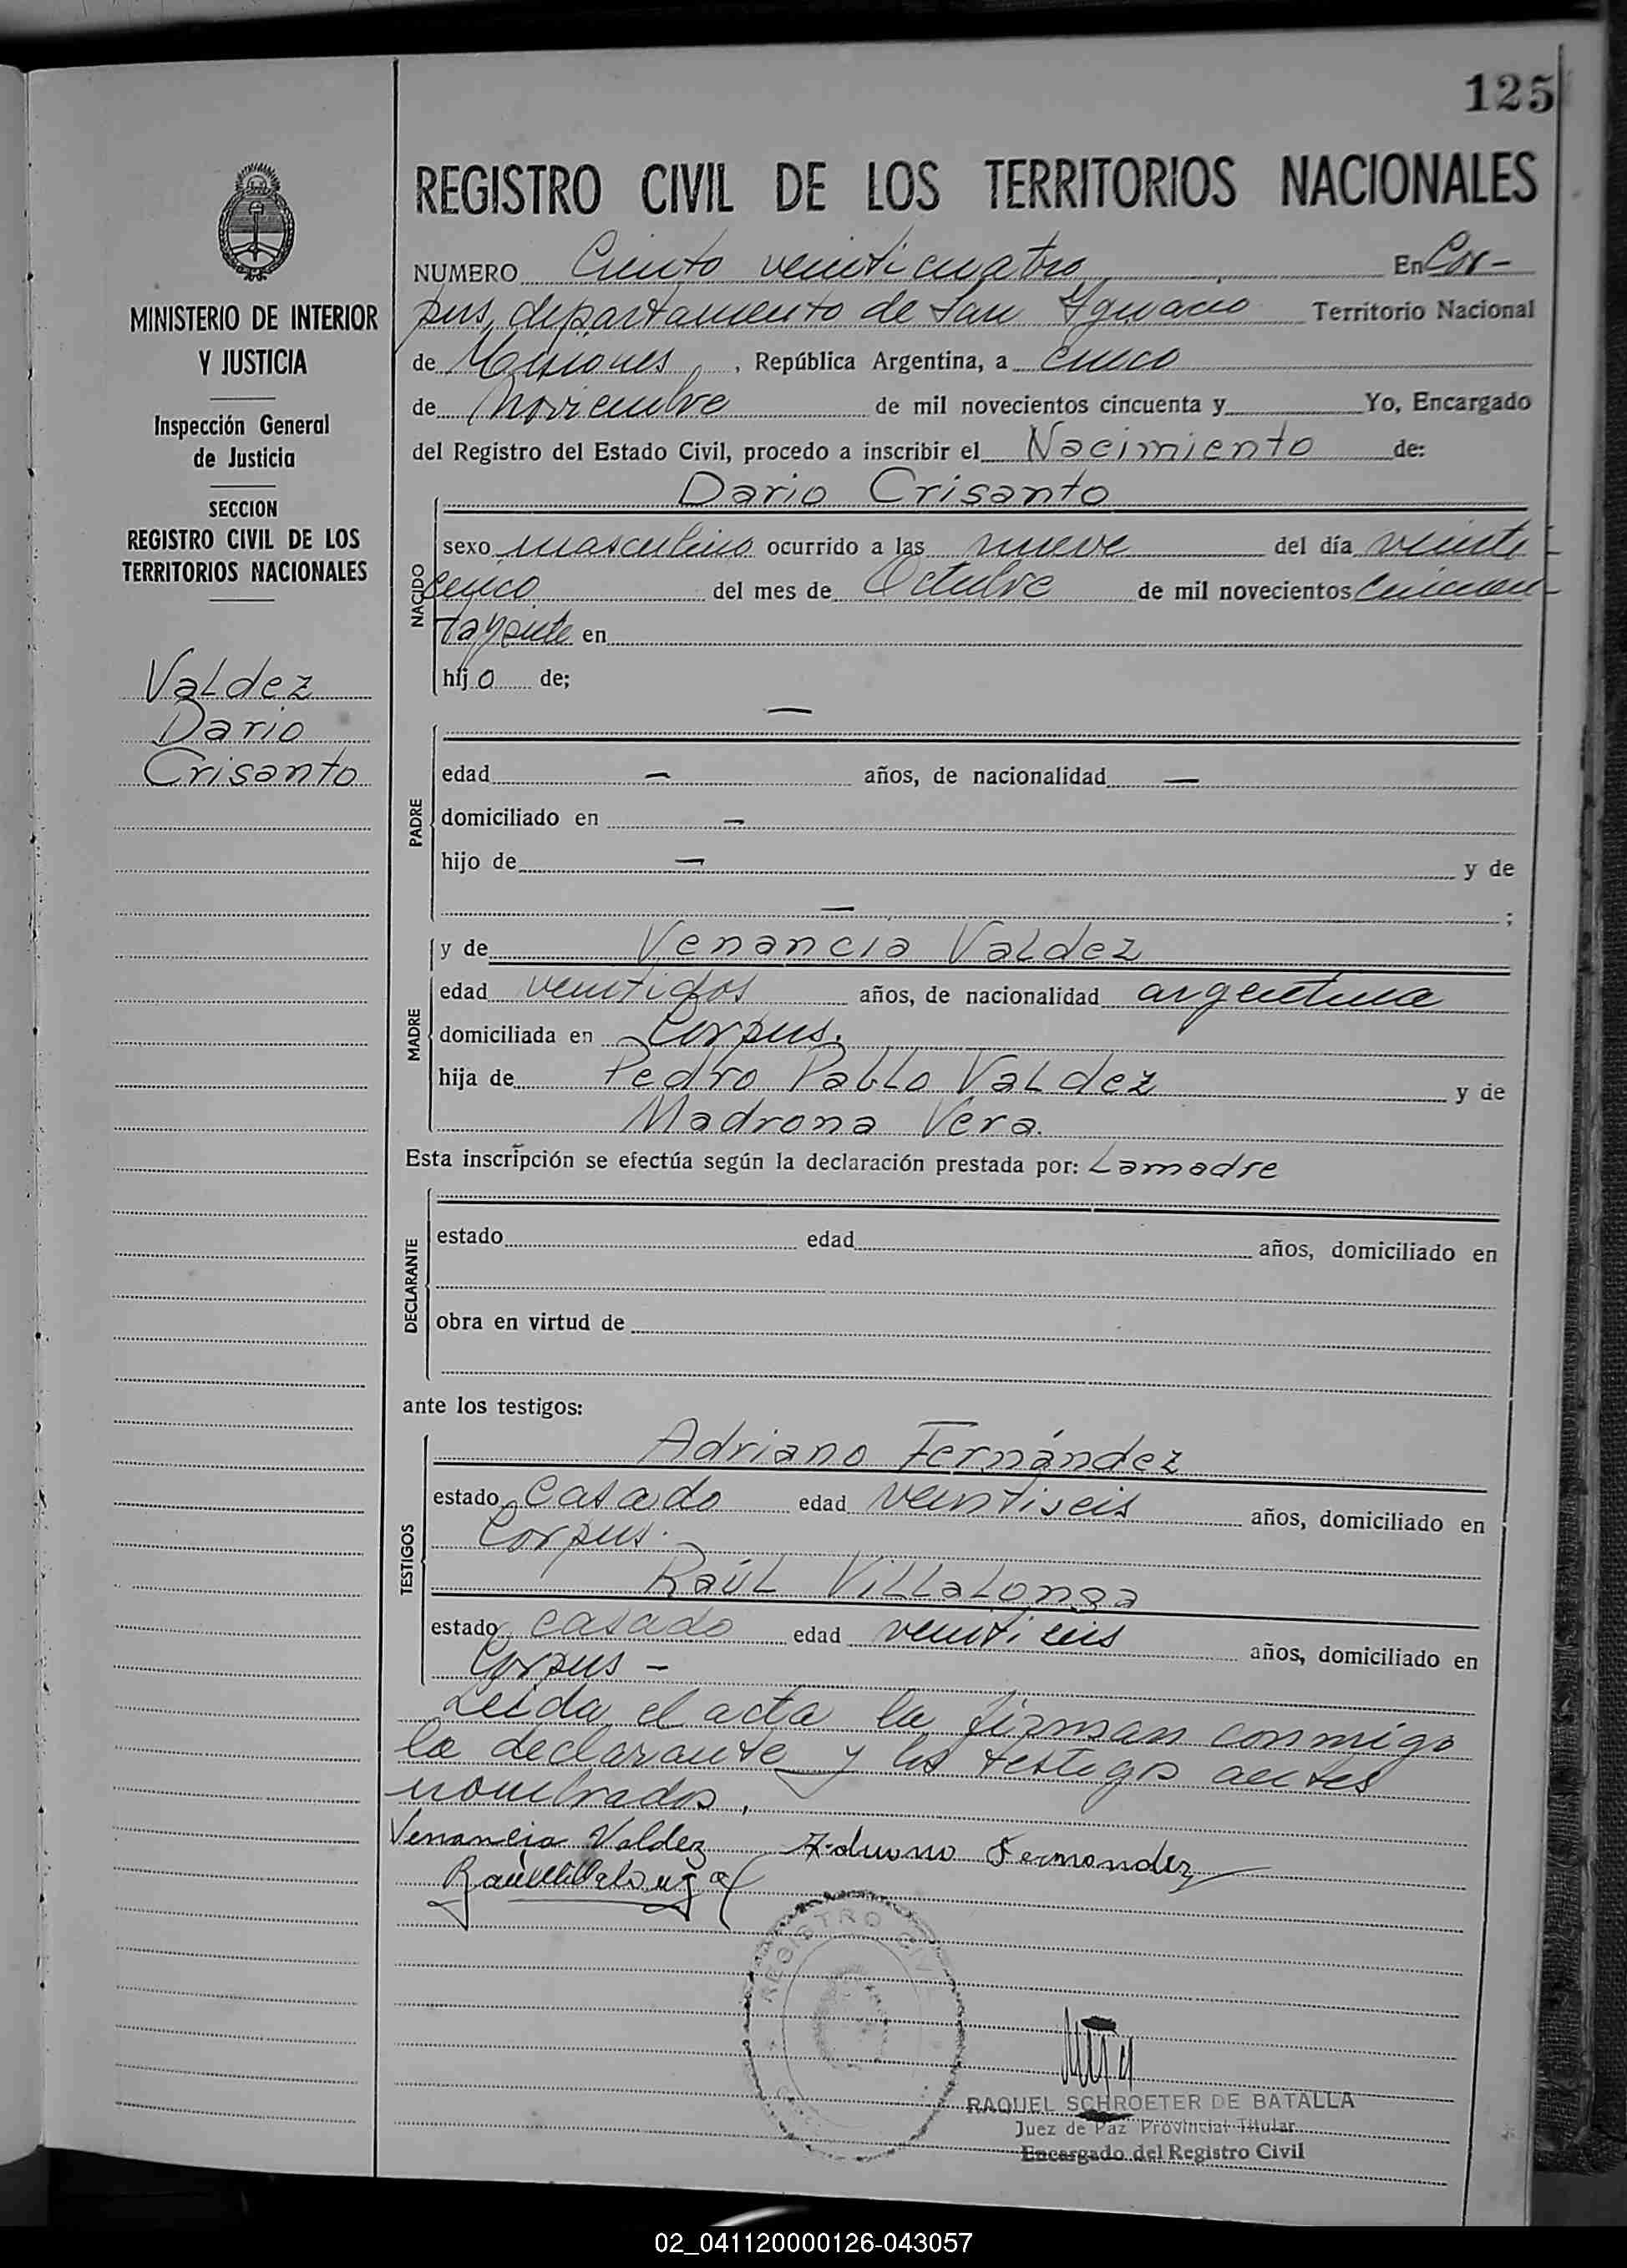 125
REGISTRO CIVIL DE LOS TERRITORIOS NACIONALES
NUMERO Ciento veinticuatro En Cor-
pus, departamento de San Ignacio Territorio Nacional
de Misiones, República Argentina, a cinco
de Noviembre de mil novecientos cincuenta y Yo, Encargado
del Registro del Estado Civil, procedo a inscribir el Nacimiento de:
Dario Crisanto
NACIDO
sexo masculino ocurrido a las nueve del día veinti-
cinco del mes de Octubre de mil novecientos cincuen-
tay en
hijo de;
MINISTERIO DE INTERIOR
Y JUSTICIA
Inspección General
de Justicia
SECCION
REGISTRO CIVIL DE LOS
TERRITORIOS NACIONALES
Valdez
Dario
Crisanto
PADRE
—
edad — años, de nacionalidad —
domiciliado en —
hijo de — y de
— ;
MADRE
y de Venancia Valdez
edad veintidos años, de nacionalidad argentina
domiciliada en Corpus.
hija de Pedro Pablo Valdez y de
Madrona Vera.
Esta inscripción se efectúa según la declaración prestada por: La madre
DECLARANTE
estado edad años, domiciliado en
obra en virtud de
ante los testigos:
TESTIGOS
Adriano Fernández
estado casado edad veintiseis años, domiciliado en
Corpus.
Raúl Villalonga
estado casado edad años, domiciliado en
Corpus -
Leida el acta la firman conmigo
la declarante y los testigos antes
nombrados.
Venancia Valdez Adriano Fernandez
Raúl Villalonga
REGISTRO CIVIL
RAQUEL SCHROETER DE BATALLA
Juez de Paz Provincial Titular
Encargado del Registro Civil
02_041120000126-043057